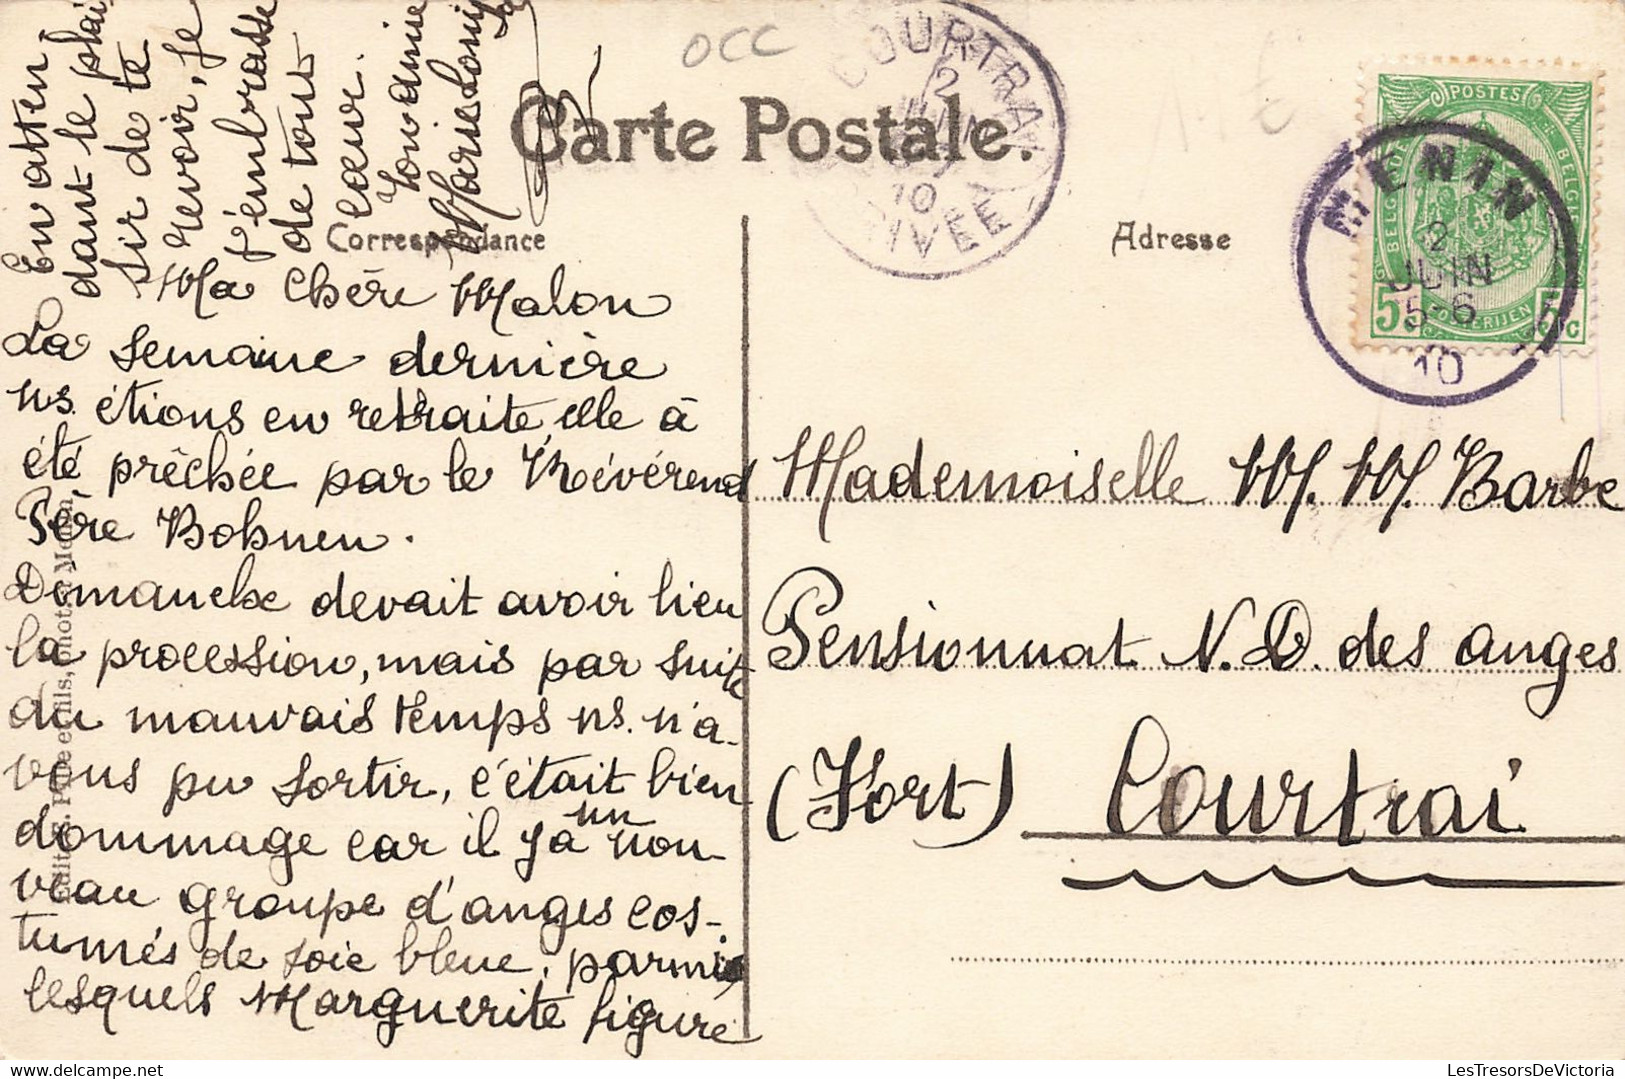 occ
COURTRAI
2
JUIN
10
ARRIVÉE
Carte Postale.
Correspondance
Adresse
POSTES
BELGIQUE
BELGIË
POSTERIJEN
5 c
MENIN
2
JUIN
5-6
10
Ma Chère Malou
La semaine dernière
ns. étions en retraite, elle à
été prêchée par le Révérend
Père Bohnen.
Dimanche devait avoir lieu
la procession, mais par suite
du mauvais temps ns. n'a-
vons pu sortir, c'était bien
dommage car il y a un nou-
veau groupe d'anges cos-
tumés de soie bleue, parmi
lesquels Marguerite figure
En atten
dant le plai
sir de te
revoir, je
t'embrasse
de tout
cœur.
Ton amie
Marie Louise
Mademoiselle M. M. Barbe
Pensionnat N. D. des anges
(Fort) Courtrai
LesTresorsDeVictoria